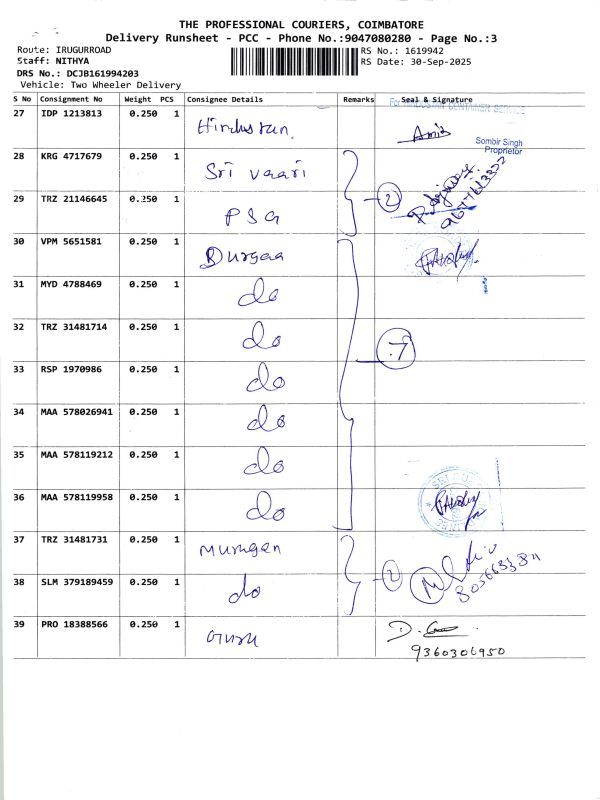 THE PROFESSIONAL COURIERS, COIMBATORE
Delivery Runsheet - PCC - Phone No.:9047080280 - Page No.:3
Route: IRUGURROAD
RS No.: 1619942
Staff: NITHYA
RS Date: 30-Sep-2025
DRS No.: DCJB161994203
Vehicle: Two Wheeler Delivery
S No Consignment No Weight PCS Consignee Details Remarks Seal & Signature
27 IDP 1213813 0.250 1 Hindustan. Amit
Sombir Singh
Proprietor
28 KRG 4717679 0.250 1 Sri Vaari
29 TRZ 21146645 0.250 1 PSG 2
30 VPM 5651581 0.250 1 Durgaa
31 MYD 4788469 0.250 1 do
32 TRZ 31481714 0.250 1 do 7
33 RSP 1970986 0.250 1 do
34 MAA 578026941 0.250 1 do
35 MAA 578119212 0.250 1 do
36 MAA 578119958 0.250 1 do
37 TRZ 31481731 0.250 1 Murugan
38 SLM 379189459 0.250 1 do 2
39 PRO 18388566 0.250 1 Guru
9360306950